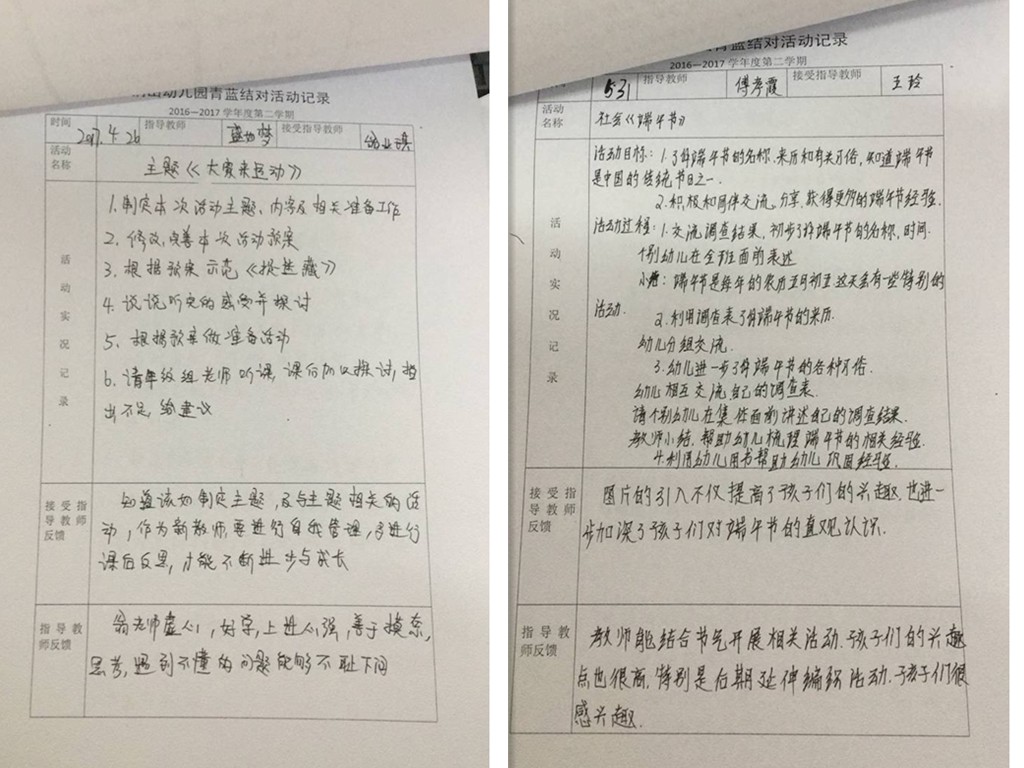 幼儿园青蓝结对活动记录
2016—2017 学年度第二学期
时间 2017.4.26 指导教师 接受指导教师
活动名称 主题《大家来运动》
活动实况记录
1.制定本次活动主题、内容及相关准备工作
2. 修改,完善本次活动教案
3. 根据教案 示范《捉迷藏》
4. 说说听完的感受并探讨
5. 根据教案做准备活动
6. 请年级组老师听课,课后加以探讨,指
出不足,给建议
接受指导教师反馈
知道该如何制定主题,及与主题相关的活
动,作为新教师,要进行自我管理,多进行
课后反思,才能不断进步与成长
指导教师反馈
翁老师虚心,好学,上进心强,善于摸索,
思考,遇到不懂的问题能够不耻下问
青蓝结对活动记录
2016—2017 学年度第二学期
531 指导教师 傅孝霞 接受指导教师 王玲
活动名称 社会《端午节》
活动实况记录
活动目标:1.了解端午节的名称、来历和有关习俗,知道端午节
是中国的传统节日之一.
2.积极和同伴交流、分享,获得更多的端午节经验.
活动过程:1.交流调查结果,初步了解端午节的名称,时间.
个别幼儿在全班面前表述
小结:端午节是每年的农历五月初五 这天会有一些特别的
活动.
2.利用调查表了解端午节的来历.
幼儿分组交流.
3.幼儿进一步了解端午节的各种习俗.
幼儿相互交流自己的调查表.
请个别幼儿在集体面前讲述自己的调查结果.
教师小结,帮助幼儿梳理端午节的相关经验.
4.利用幼儿用书帮助幼儿巩固经验.
接受指导教师反馈
图片的引入不仅提高了孩子们的兴趣.也进一
步加深了孩子们对端午节的直观认识.
指导教师反馈
教师能结合节气开展相关活动.孩子们的兴趣
点也很高.特别是后期延伸编织活动.孩子们很
感兴趣.